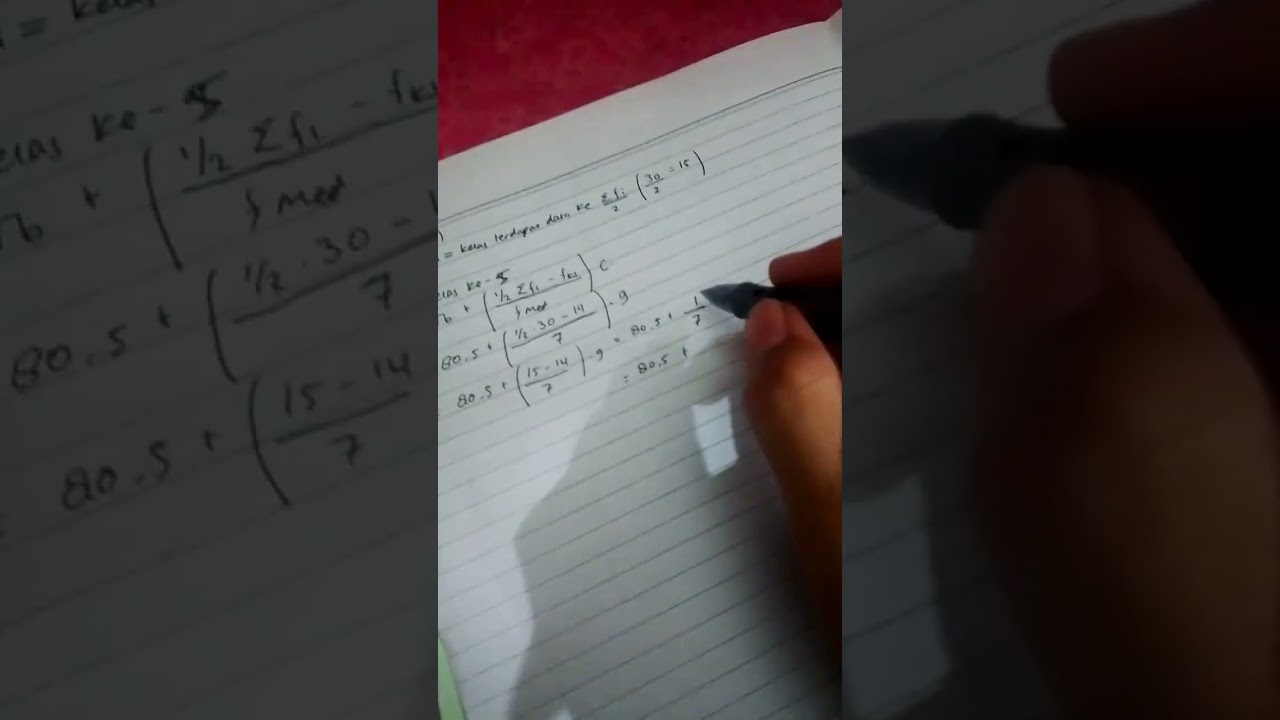 = kelas terdapat data ke Σfi/2 (30/2 = 15)
kelas ke - 5
Tb + (1/2 Σfi - fks / fmed) C
80.5 + (1/2 . 30 - 14 / 7) . 9
80.5 + (15 - 14 / 7) . 9 = 80.5 + 1/7
= 80.5 +